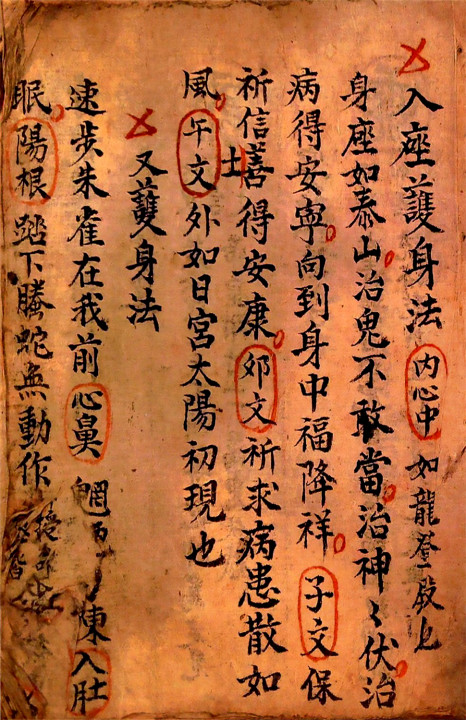 入座護身法內心中如龍登殿也
身座如泰山治鬼不敢當治神〻伏治
病得安寧向到身中福降祥子文保
祈信士善得安康邜文祈求病患散如
風午文外如日宮太陽初現也
又護身法
速步朱雀在我前心鼻 陳入肚
眠陽根踏下螣蛇無動作